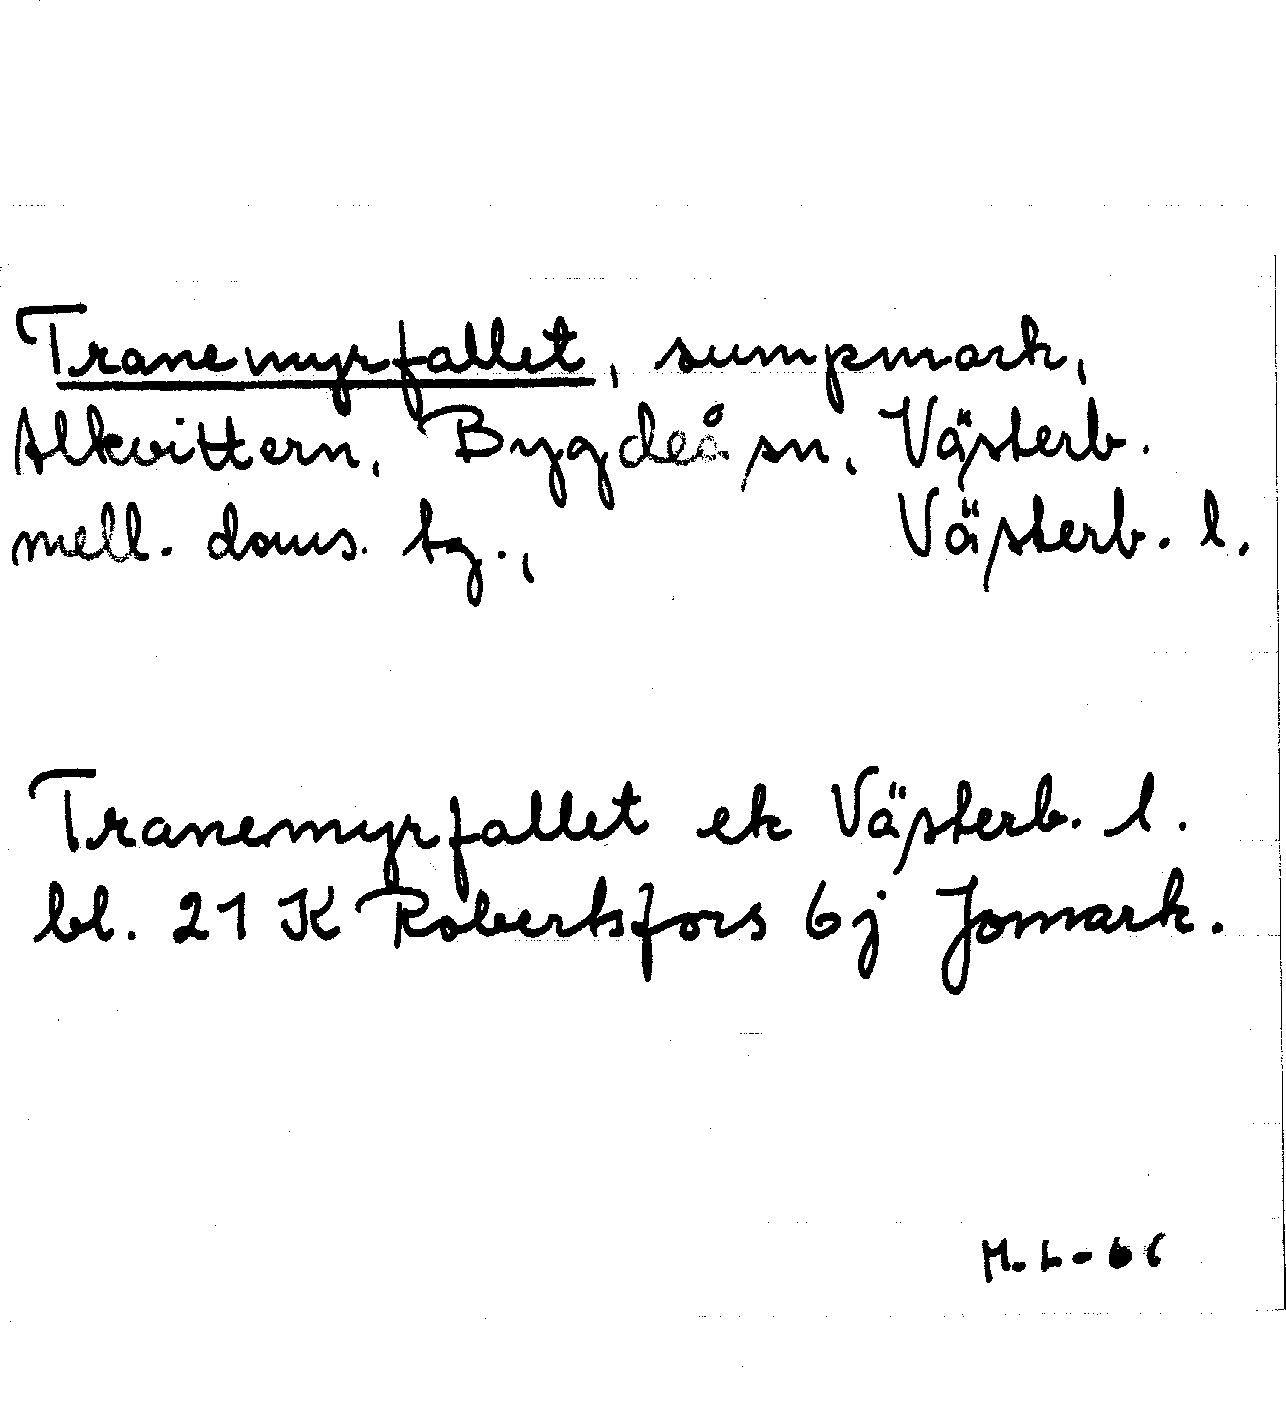 Tranemyrfallet, sumpmark,
Alkvittern, Bygdeå sn, Västerb.
mell. doms. tg., Västerb. l.
Tranemyrfallet ek Västerb. l.
bl. 21 K Robertsfors 6j Jomark.
M.L-66